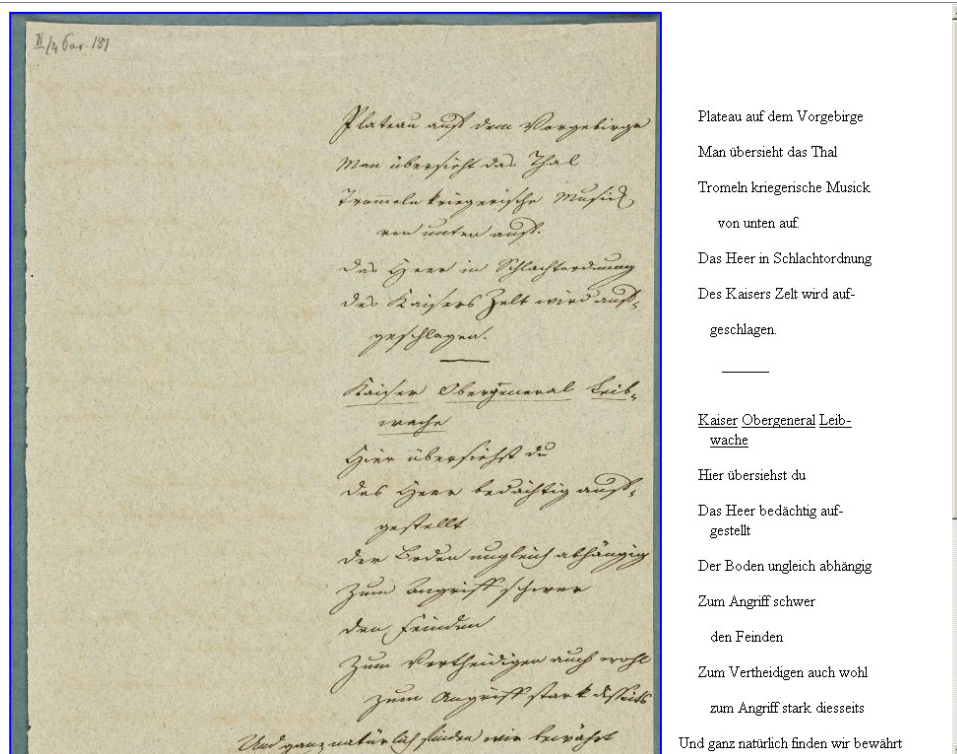 II/4 Par. 191
Plateau auf dem Vorgebirge
Man übersieht das Thal
Tromeln kriegerische Musick
von unten auf.
Das Heer in Schlachtordnung
Des Kaisers Zelt wird auf-
geschlagen.
Kaiser Obergeneral Leib-
wache
Hier übersiehst du
Das Heer bedächtig auf-
gestellt
Der Boden ungleich abhängig
Zum Angriff schwer
den Feinden
Zum Vertheidigen auch wohl
zum Angriff stark diesseits
Und ganz natürlich finden wir bewährt
Plateau auf dem Vorgebirge
Man übersieht das Thal
Tromeln kriegerische Musick
von unten auf.
Das Heer in Schlachtordnung
Des Kaisers Zelt wird auf-
geschlagen.
Kaiser Obergeneral Leib-
wache
Hier übersiehst du
Das Heer bedächtig auf-
gestellt
Der Boden ungleich abhängig
Zum Angriff schwer
den Feinden
Zum Vertheidigen auch wohl
zum Angriff stark diesseits
Und ganz natürlich finden wir bewährt